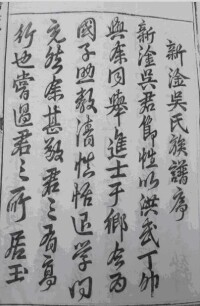 新淦吳氏族譜序
新淦吳君節性以洪武丁卯
與余同舉進士于鄉今為
國子助教清慎恬退學問
充然余甚敬君之有高
行也嘗過君之所居玉